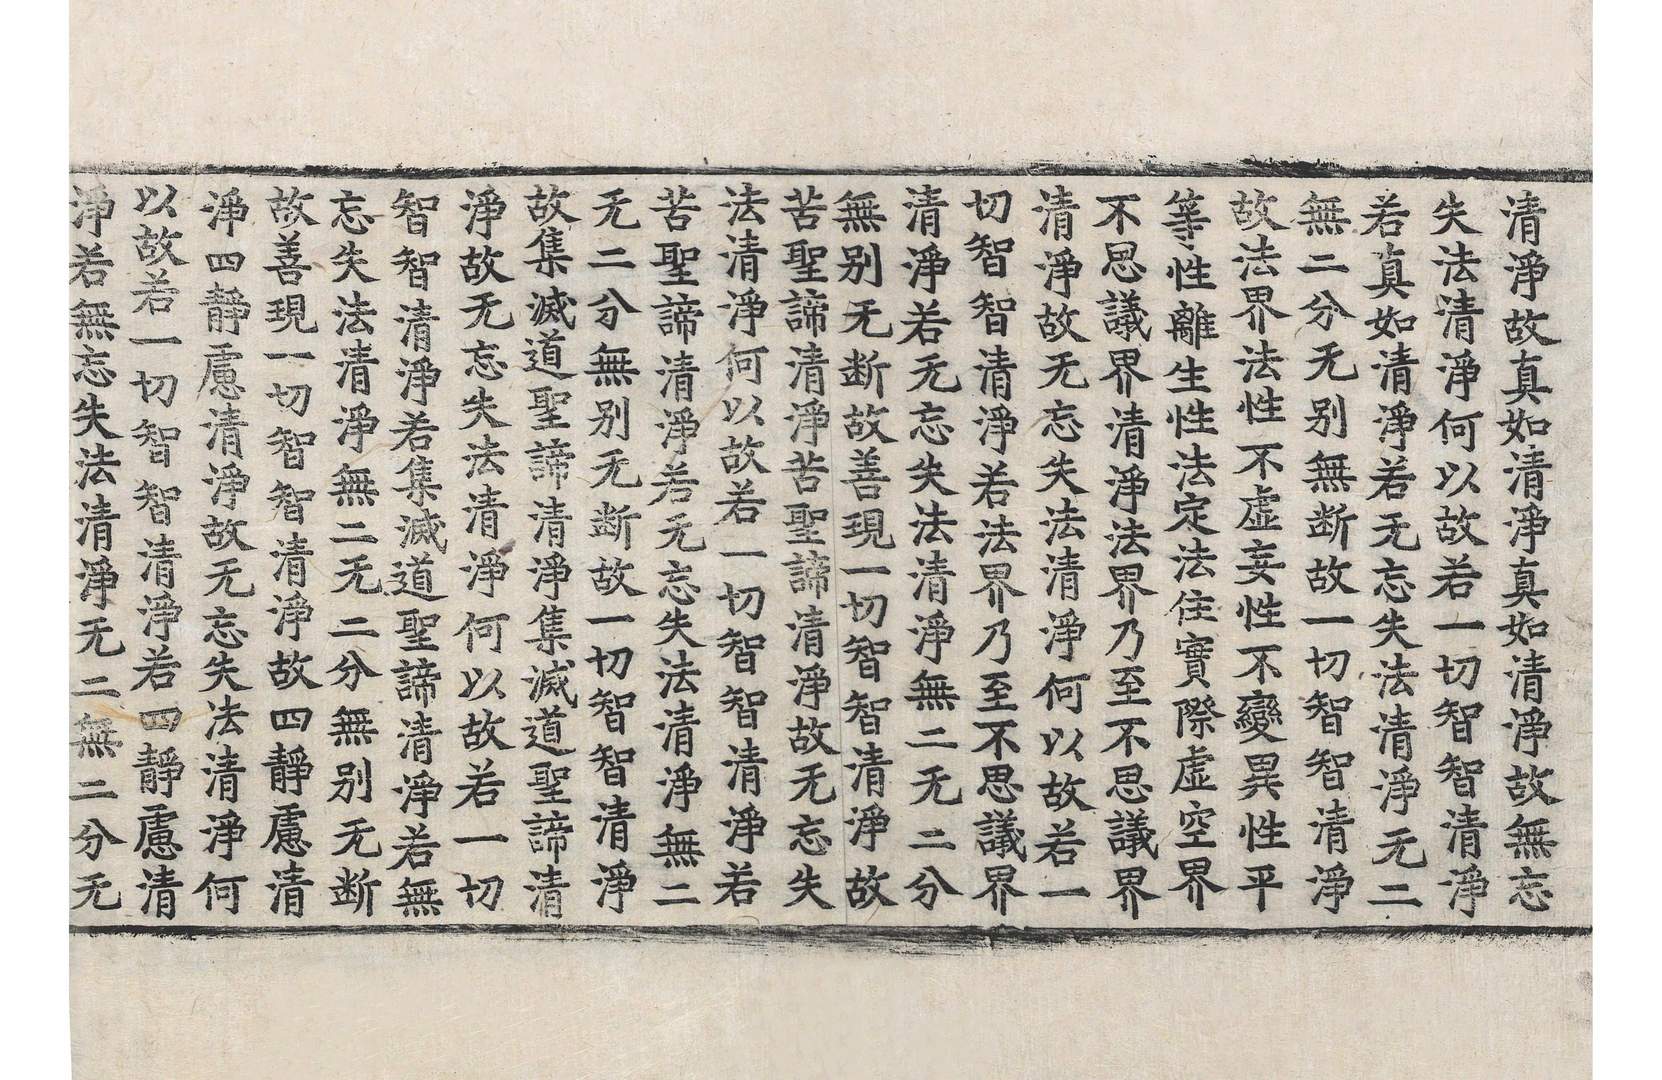 清淨故真如清淨真如清淨故無忘
失法清淨何以故若一切智智清淨
若真如清淨若无忘失法清淨无二
無二分无别無断故一切智智清淨
故法界法性不虛妄性不變異性平
等性離生性法定法住實際虛空界
不思議界清淨法界乃至不思議界
清淨故无忘失法清淨何以故若一
切智智清淨若法界乃至不思議界
清淨若无忘失法清淨無二无二分
無别无断故善現一切智智清淨故
苦聖諦清淨苦聖諦清淨故无忘失
法清淨何以故若一切智智清淨若
苦聖諦清淨若无忘失法清淨無二
无二分無别无断故一切智智清淨
故集滅道聖諦清淨集滅道聖諦清
淨故无忘失法清淨何以故若一切
智智清淨若集滅道聖諦清淨若無
忘失法清淨無二无二分無别无断
故善現一切智智清淨故四靜慮清
淨四靜慮清淨故无忘失法清淨何
以故若一切智智清淨若四靜慮清
淨若無忘失法清淨无二無二分无